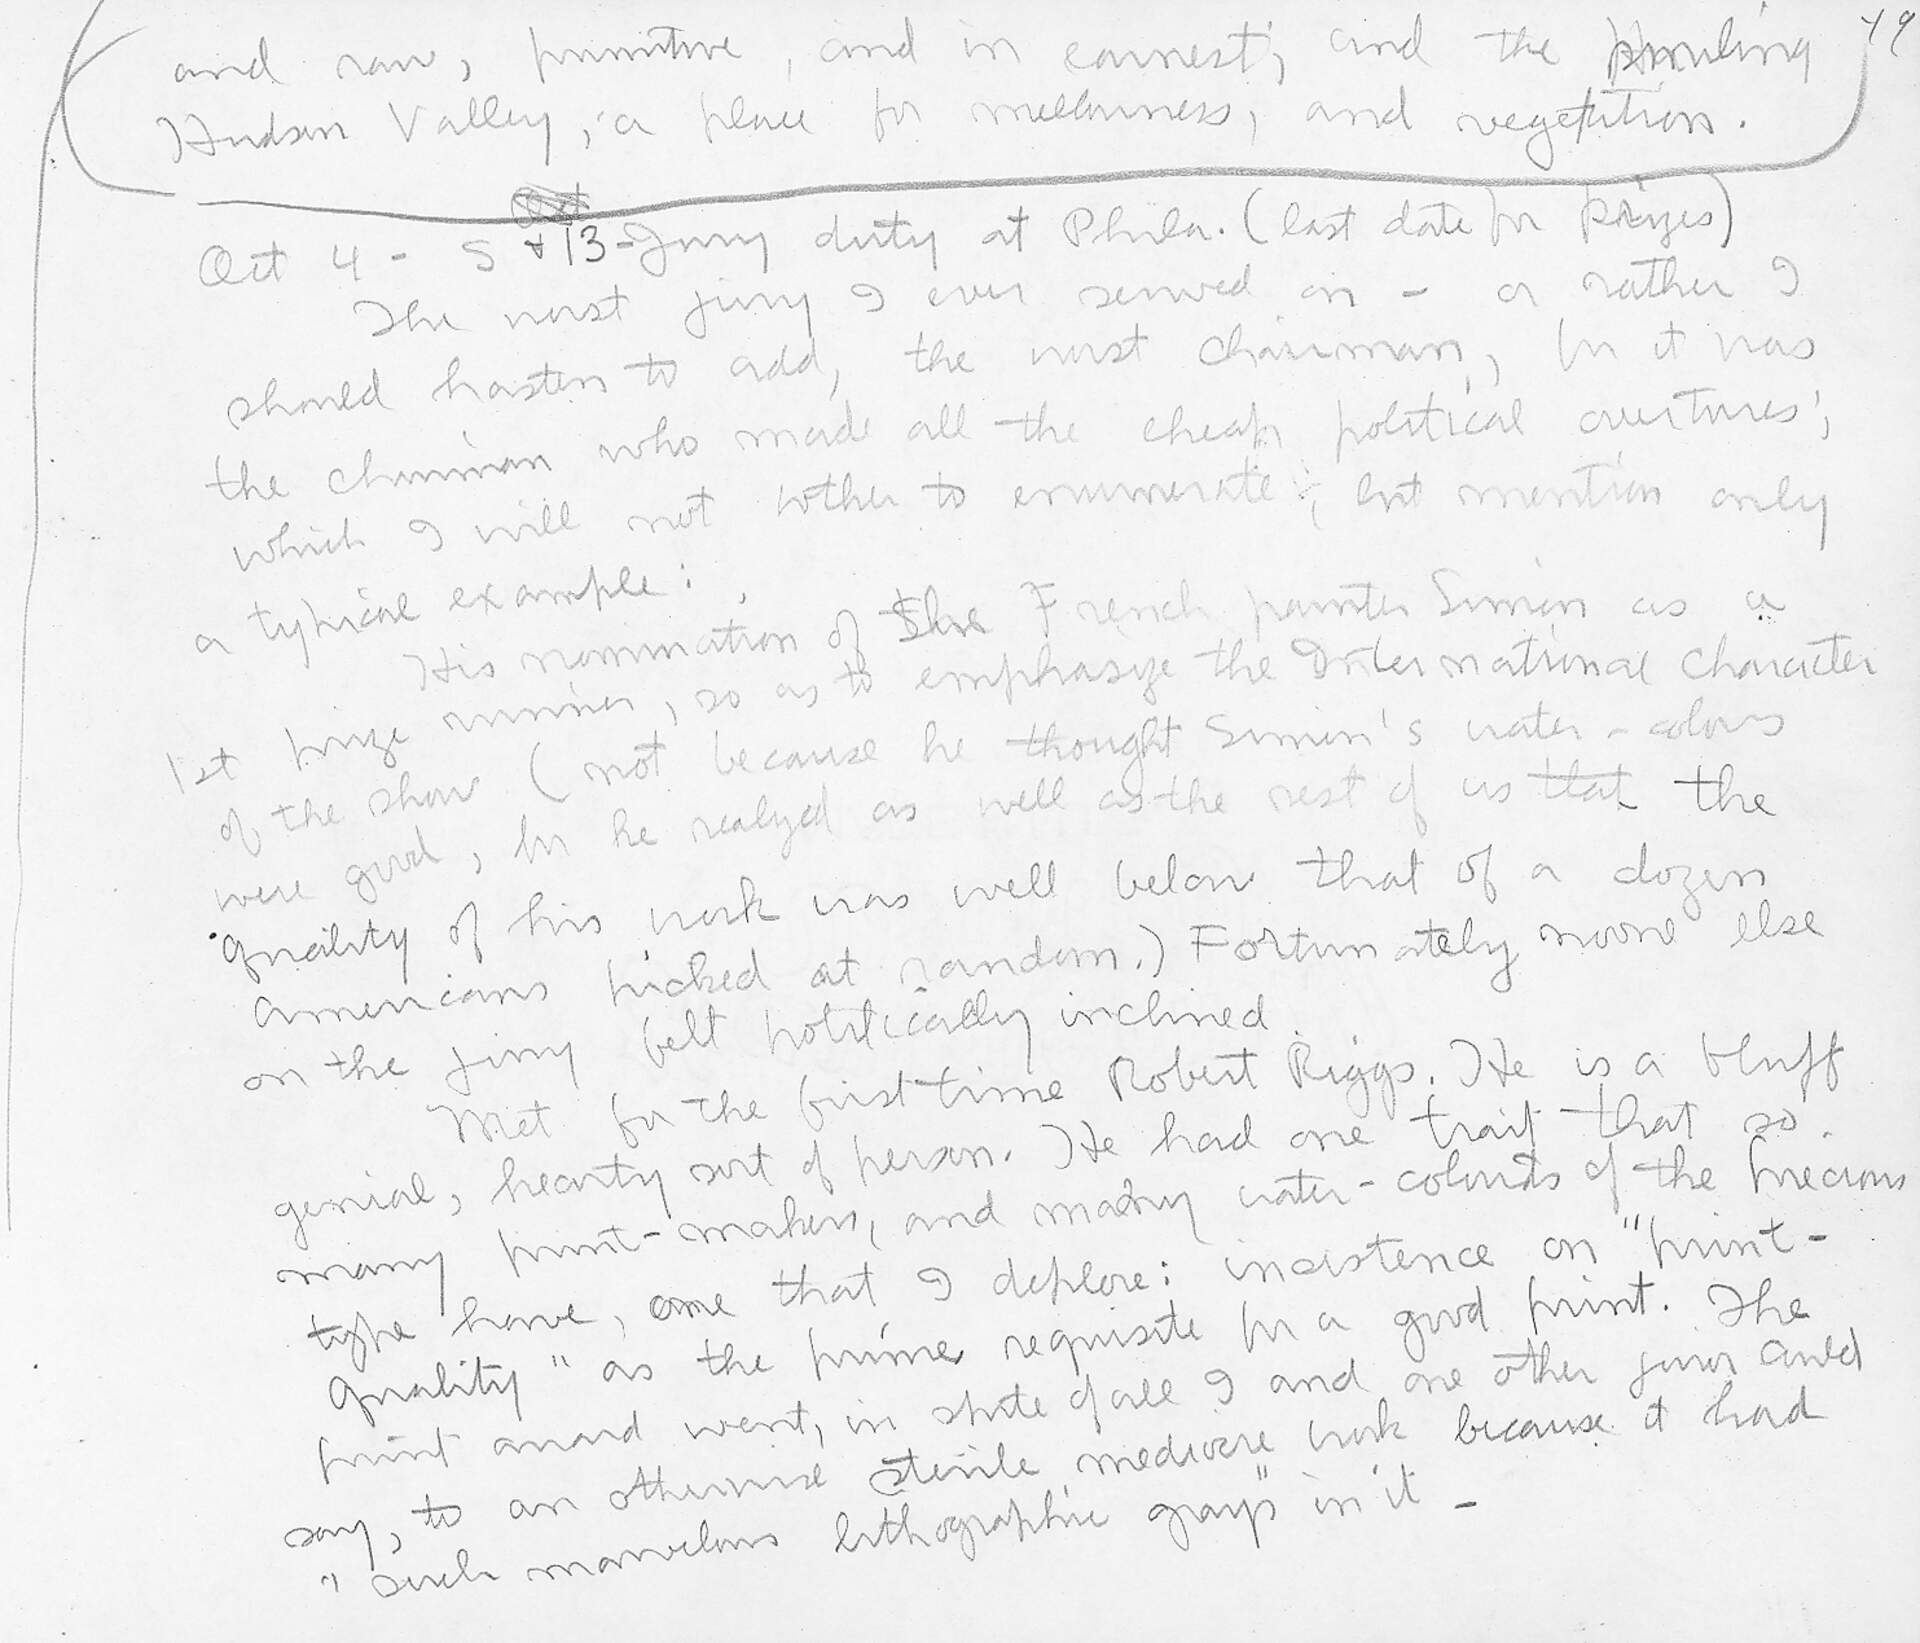 49
and raw, primitive, and in earnest; and the smiling
Hudson Valley, a place for mellowness, and vegetation.
Oct 4 - 5 & 13 - Jury duty at Phila. (last date for prizes)
The worst jury I ever served on - or rather I
should hasten to add, the worst chairman, for it was
the chairman who made all the cheap political overtures;
which I will not bother to enumerate; but mention only
a typical example:
His nomination of the French painter Simon as a
1st prize winner, so as to emphasize the International character
of the show (not because he thought Simon's water-colors
were good, for he realyzed as well as the rest of us that the
quality of his work was well below that of a dozen
Americans picked at random.) Fortunately noone else
on the jury felt politically inclined.
Met for the first time Robert Riggs. He is a bluff
genial, hearty sort of person. He had one trait that so
many print-makers, and many water-colorists of the precious
type have, one that I deplore: insistence on "print-
quality" as the prime requisite for a good print. The
print award went, in spite of all I and one other juror could
say, to an otherwise sterile mediocre work because it had
"such marvelous lithographic grays" in it -